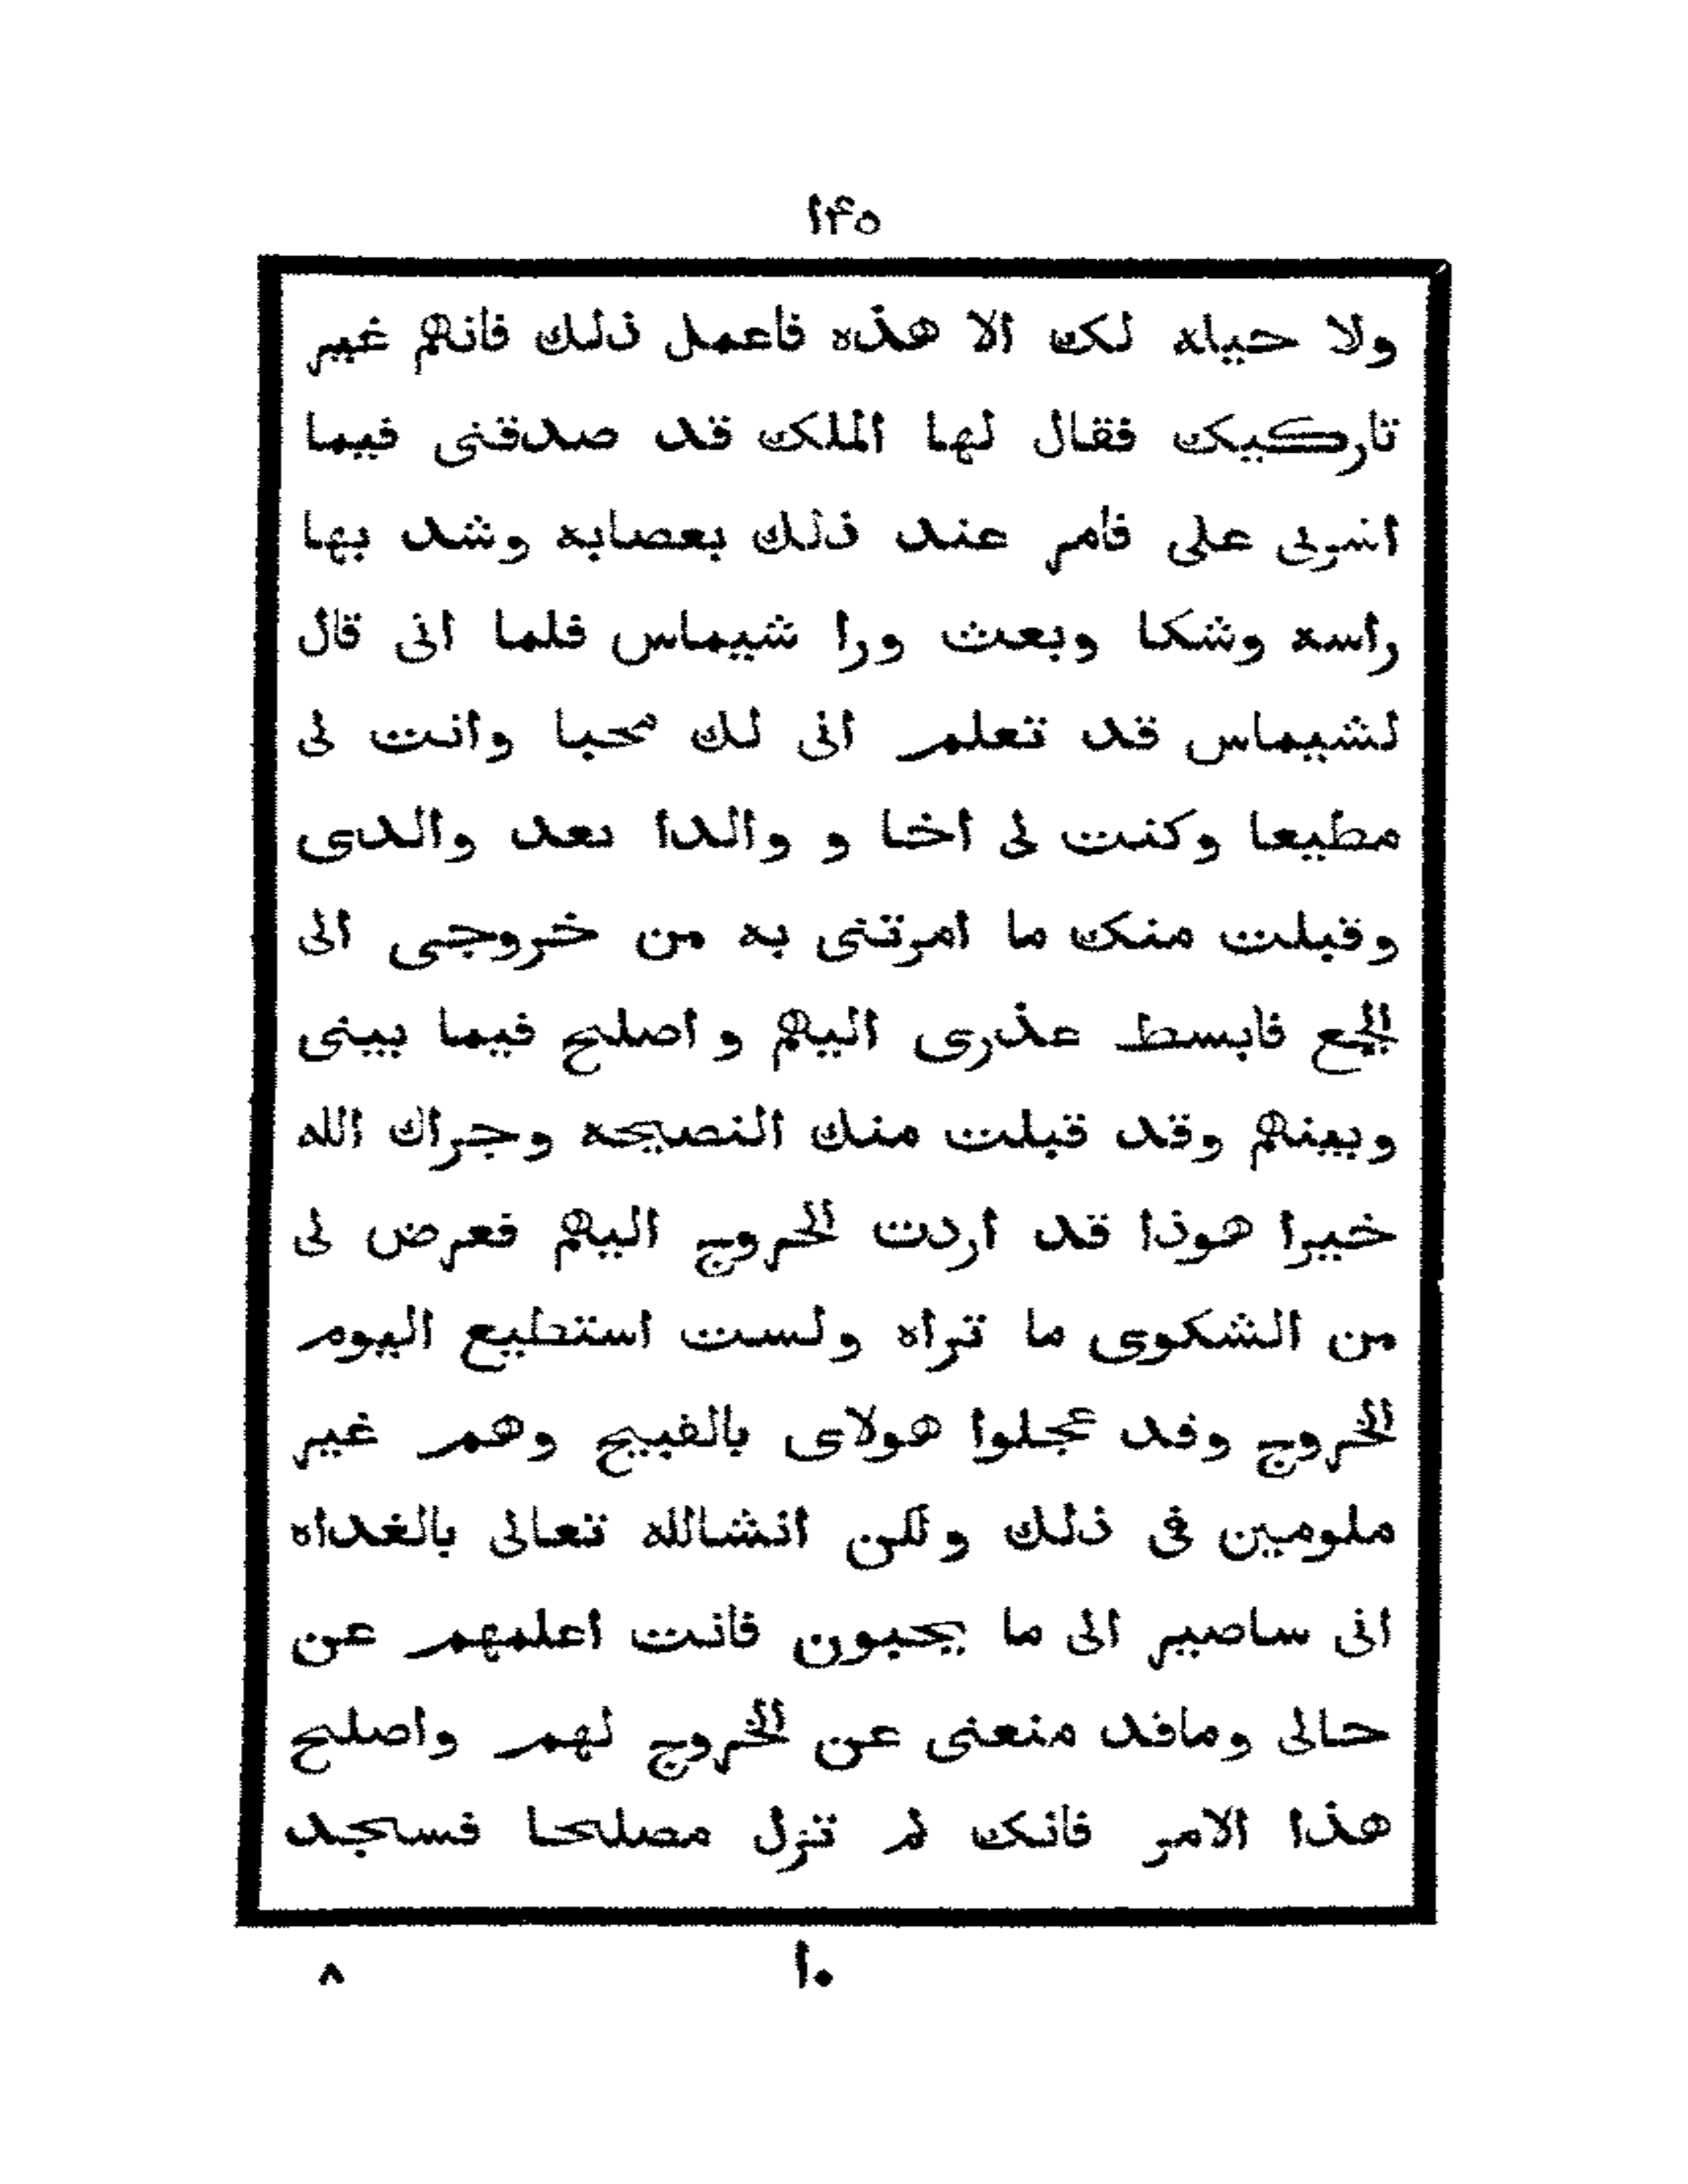 ١٤٥
ولا حياه لك الا هذه فاعمل ذلك فانهم غير
تاركيك فقال لها الملك قد صدقنى فيما
اشرنى على فامر عند ذلك بعصابه وشد بها
راسه وشكا وبعث ورا شيماس فلما انى قال
لشيماس قد تعلم انى لك محبا وانت لى
مطيعا وكنت لى اخا و والدا بعد والدى
وقبلت منك ما امرتنى به من خروجى الى
الجمع فابسط عذرى اليهم و اصلح فيما بينى
وبينهم وقد قبلت منك النصيحه وجراك الله
خيرا هوذا قد اردت الخروج اليهم فعرض لى
من الشكوى ما تراه ولست استطيع اليوم
الخروج وفد عجلوا هولاى بالفبيح وهم غير
ملومين فى ذلك ولكن انشالله تعالى بالغداه
انى ساصير الى ما يحبون فانت اعلمهم عن
حالى ومافد منعنى عن الخروج لهم واصلح
هذا الامر فانك لم تزل مصلحا فسجد
١٠ ٨